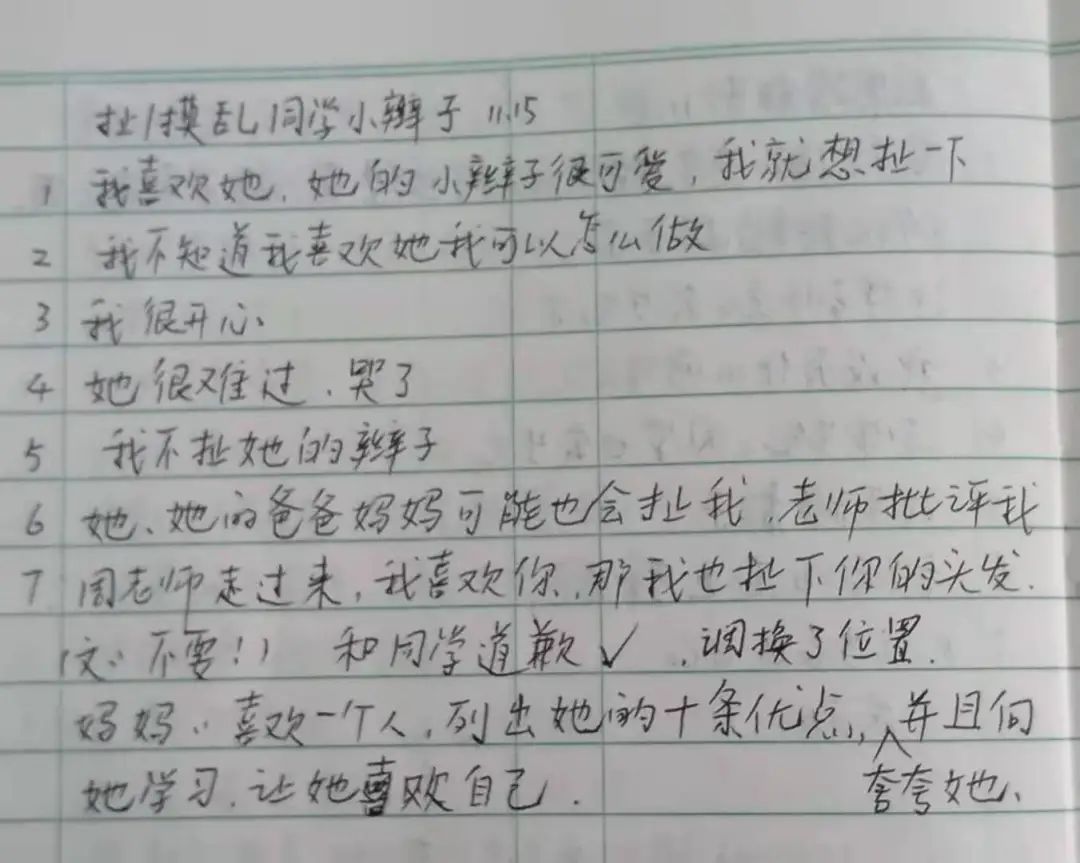 扯/摸乱同学小辫子 11.15
1 我喜欢她，她的小辫子很可爱，我就想扯一下
2 我不知道我喜欢她我可以怎么做
3 我很开心、
4 她很难过，哭了
5 我不扯她的辫子
6 她、她的爸爸妈妈可能也会扯我，老师批评我
7 周老师走过来，我喜欢你，那我也扯下你的头发.
文：不要！） 和同学道歉✓，调换了位置.
妈妈：喜欢一个人，列出她的十条优点，夸夸她、并且向
她学习，让她喜欢自己.